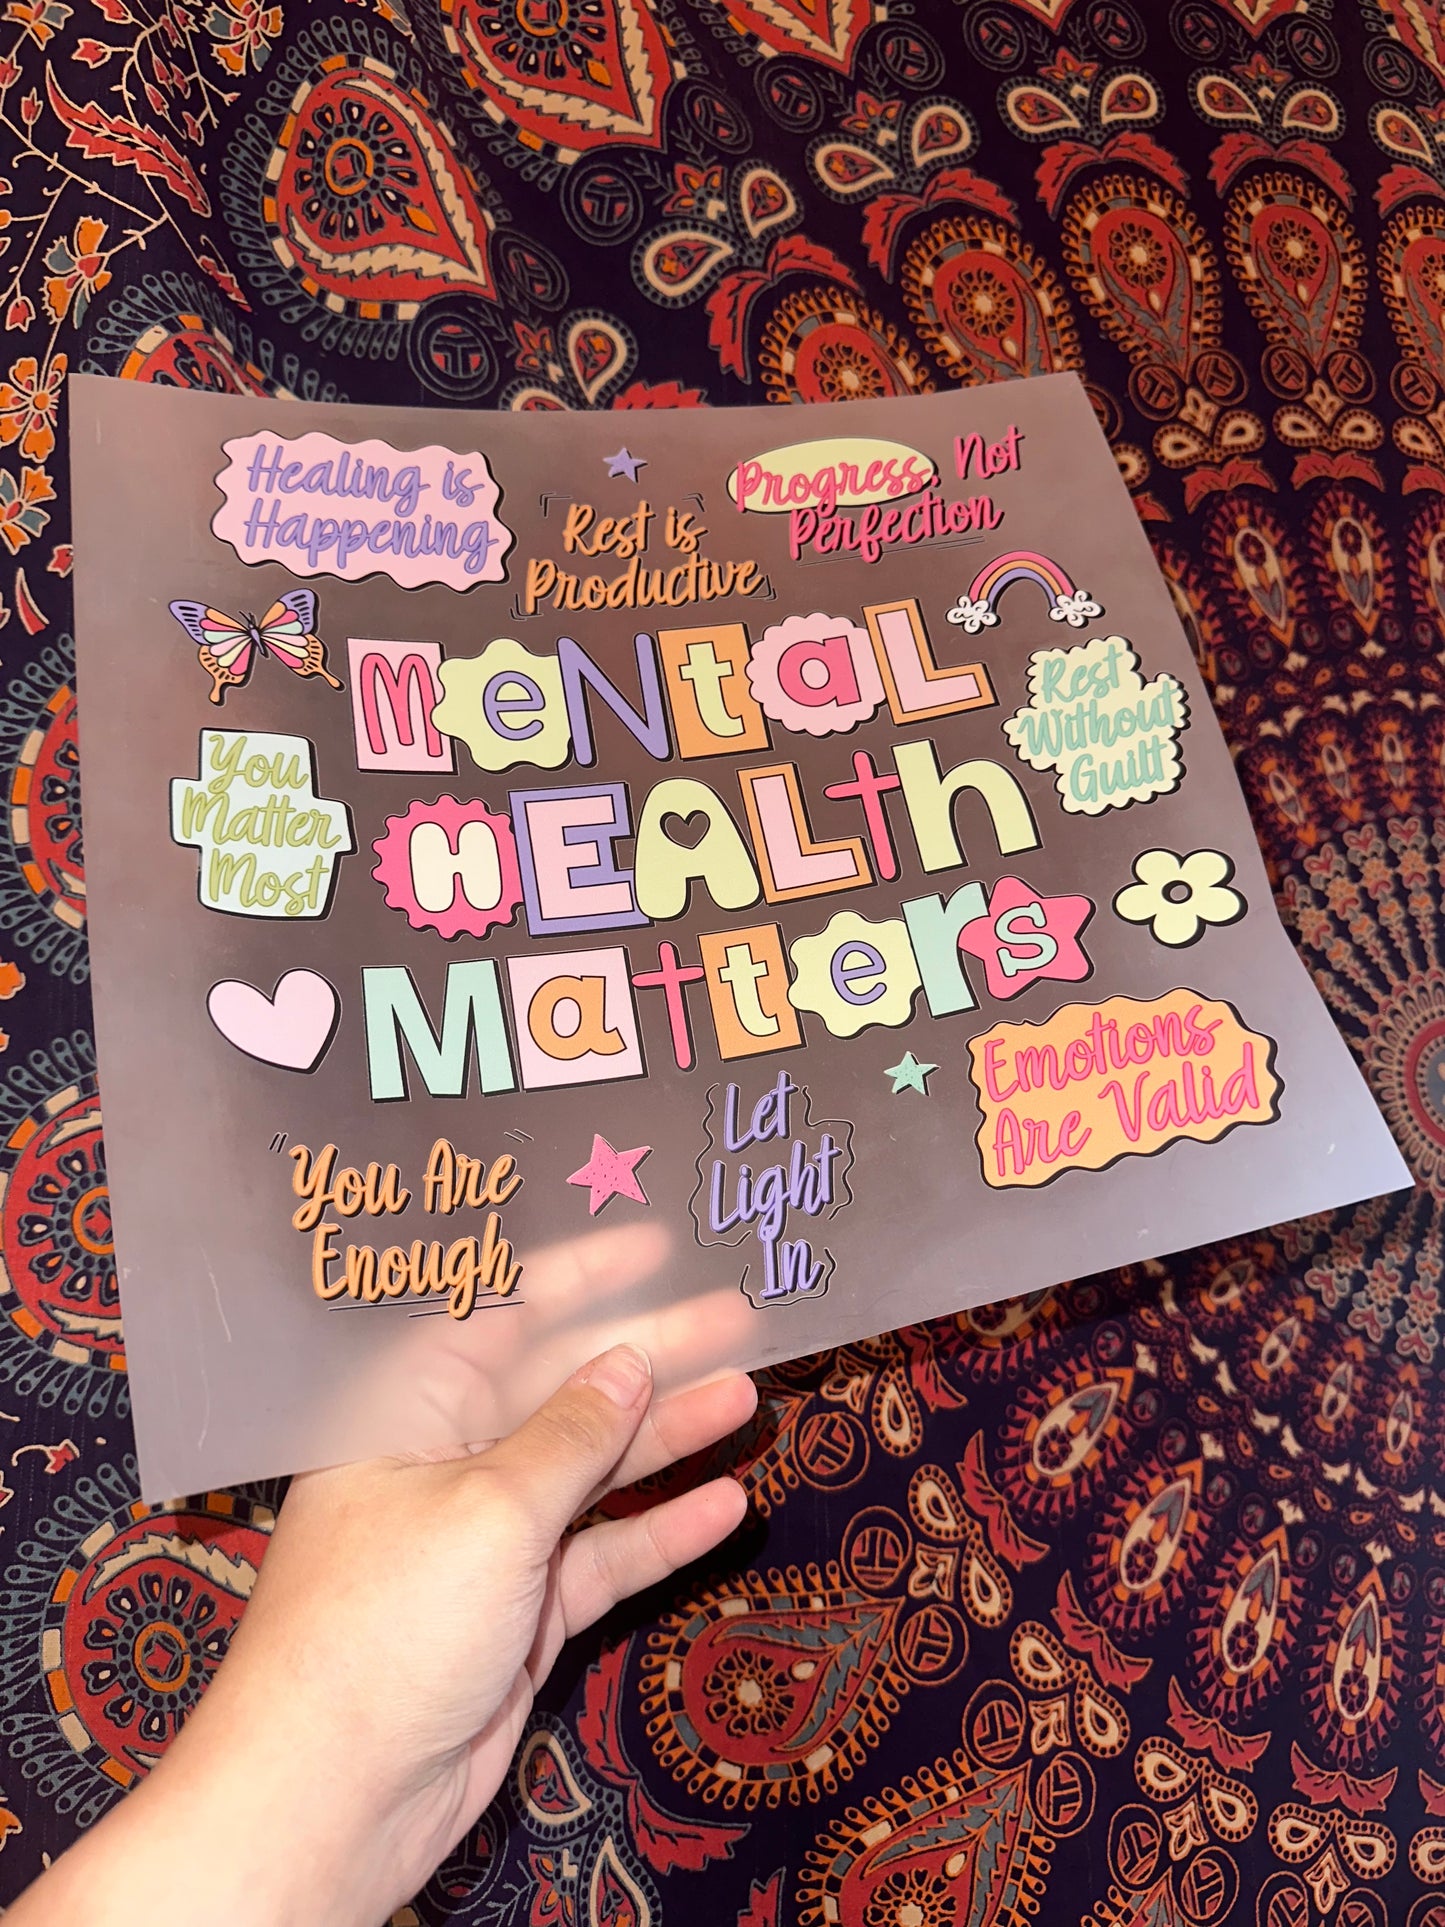 Healing is
Happening
Rest is
Productive
Progress, Not
Perfection
MeNtaL
HEALth
Matters
You
Matter
Most
Rest
Without
Guilt
Emotions
Are Valid
"You Are"
Enough
Let
Light
In